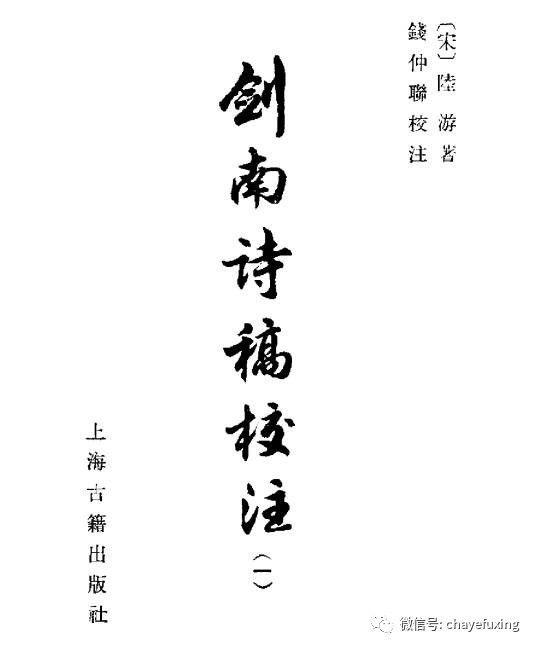 〔宋〕陸游著
錢仲聯校注
劍南詩稿校注
(一)
上海古籍出版社
微信号: chayefuxing